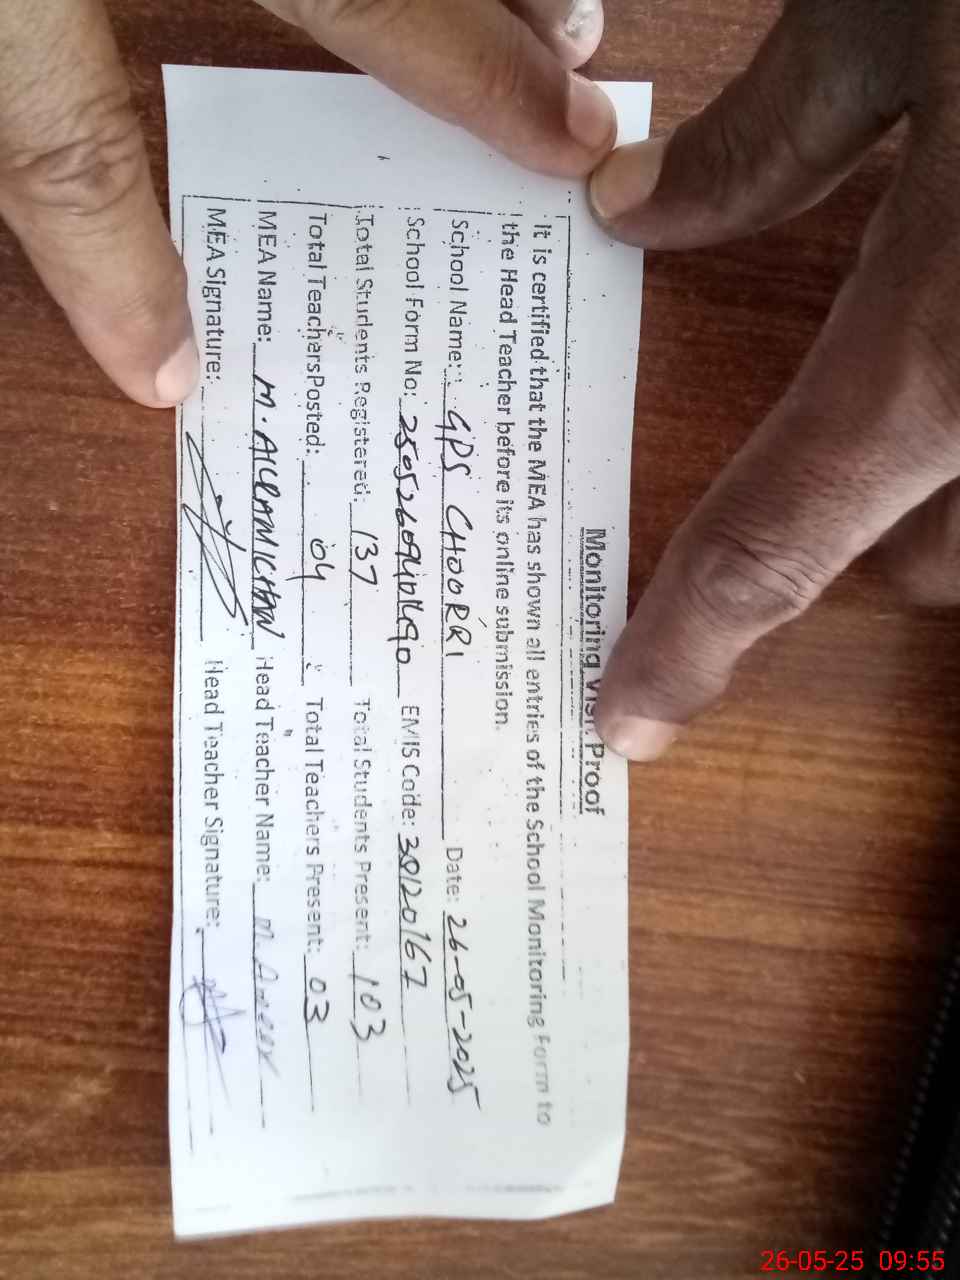 Monitoring Visit Proof
It is certified that the MEA has shown all entries of the School Monitoring Form to
the Head Teacher before its online submission.
School Name: GPS CHOORRI Date: 26-05-2025
School Form No: EMIS Code: 38120167
Total Students Registered: 137 Total Students Present: 103
Total Teachers Posted: 04 Total Teachers Present: 03
MEA Name: M. Head Teacher Name: M. Ameer
MEA Signature: Head Teacher Signature:
26-05-25 09:55